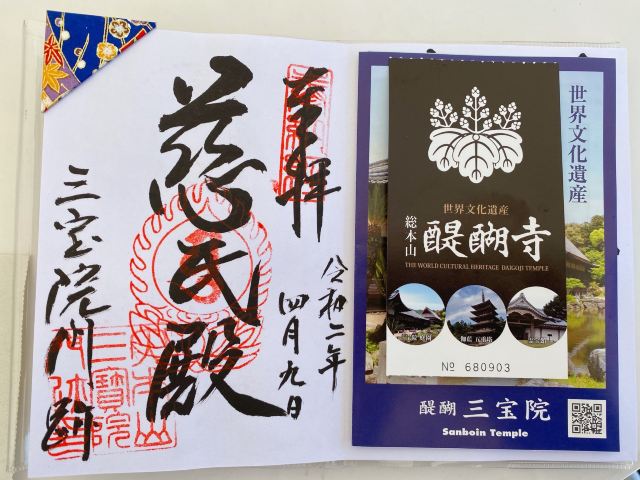 奉拝
令和二年
四月九日
慈氏殿
三宝院門跡
三寶院
世界文化遺産
世界文化遺産
総本山
醍醐寺
THE WORLD CULTURAL HERITAGE DAIGOJI TEMPLE
伽藍 五重塔
№ 680903
醍醐 三宝院
Sanboin Temple